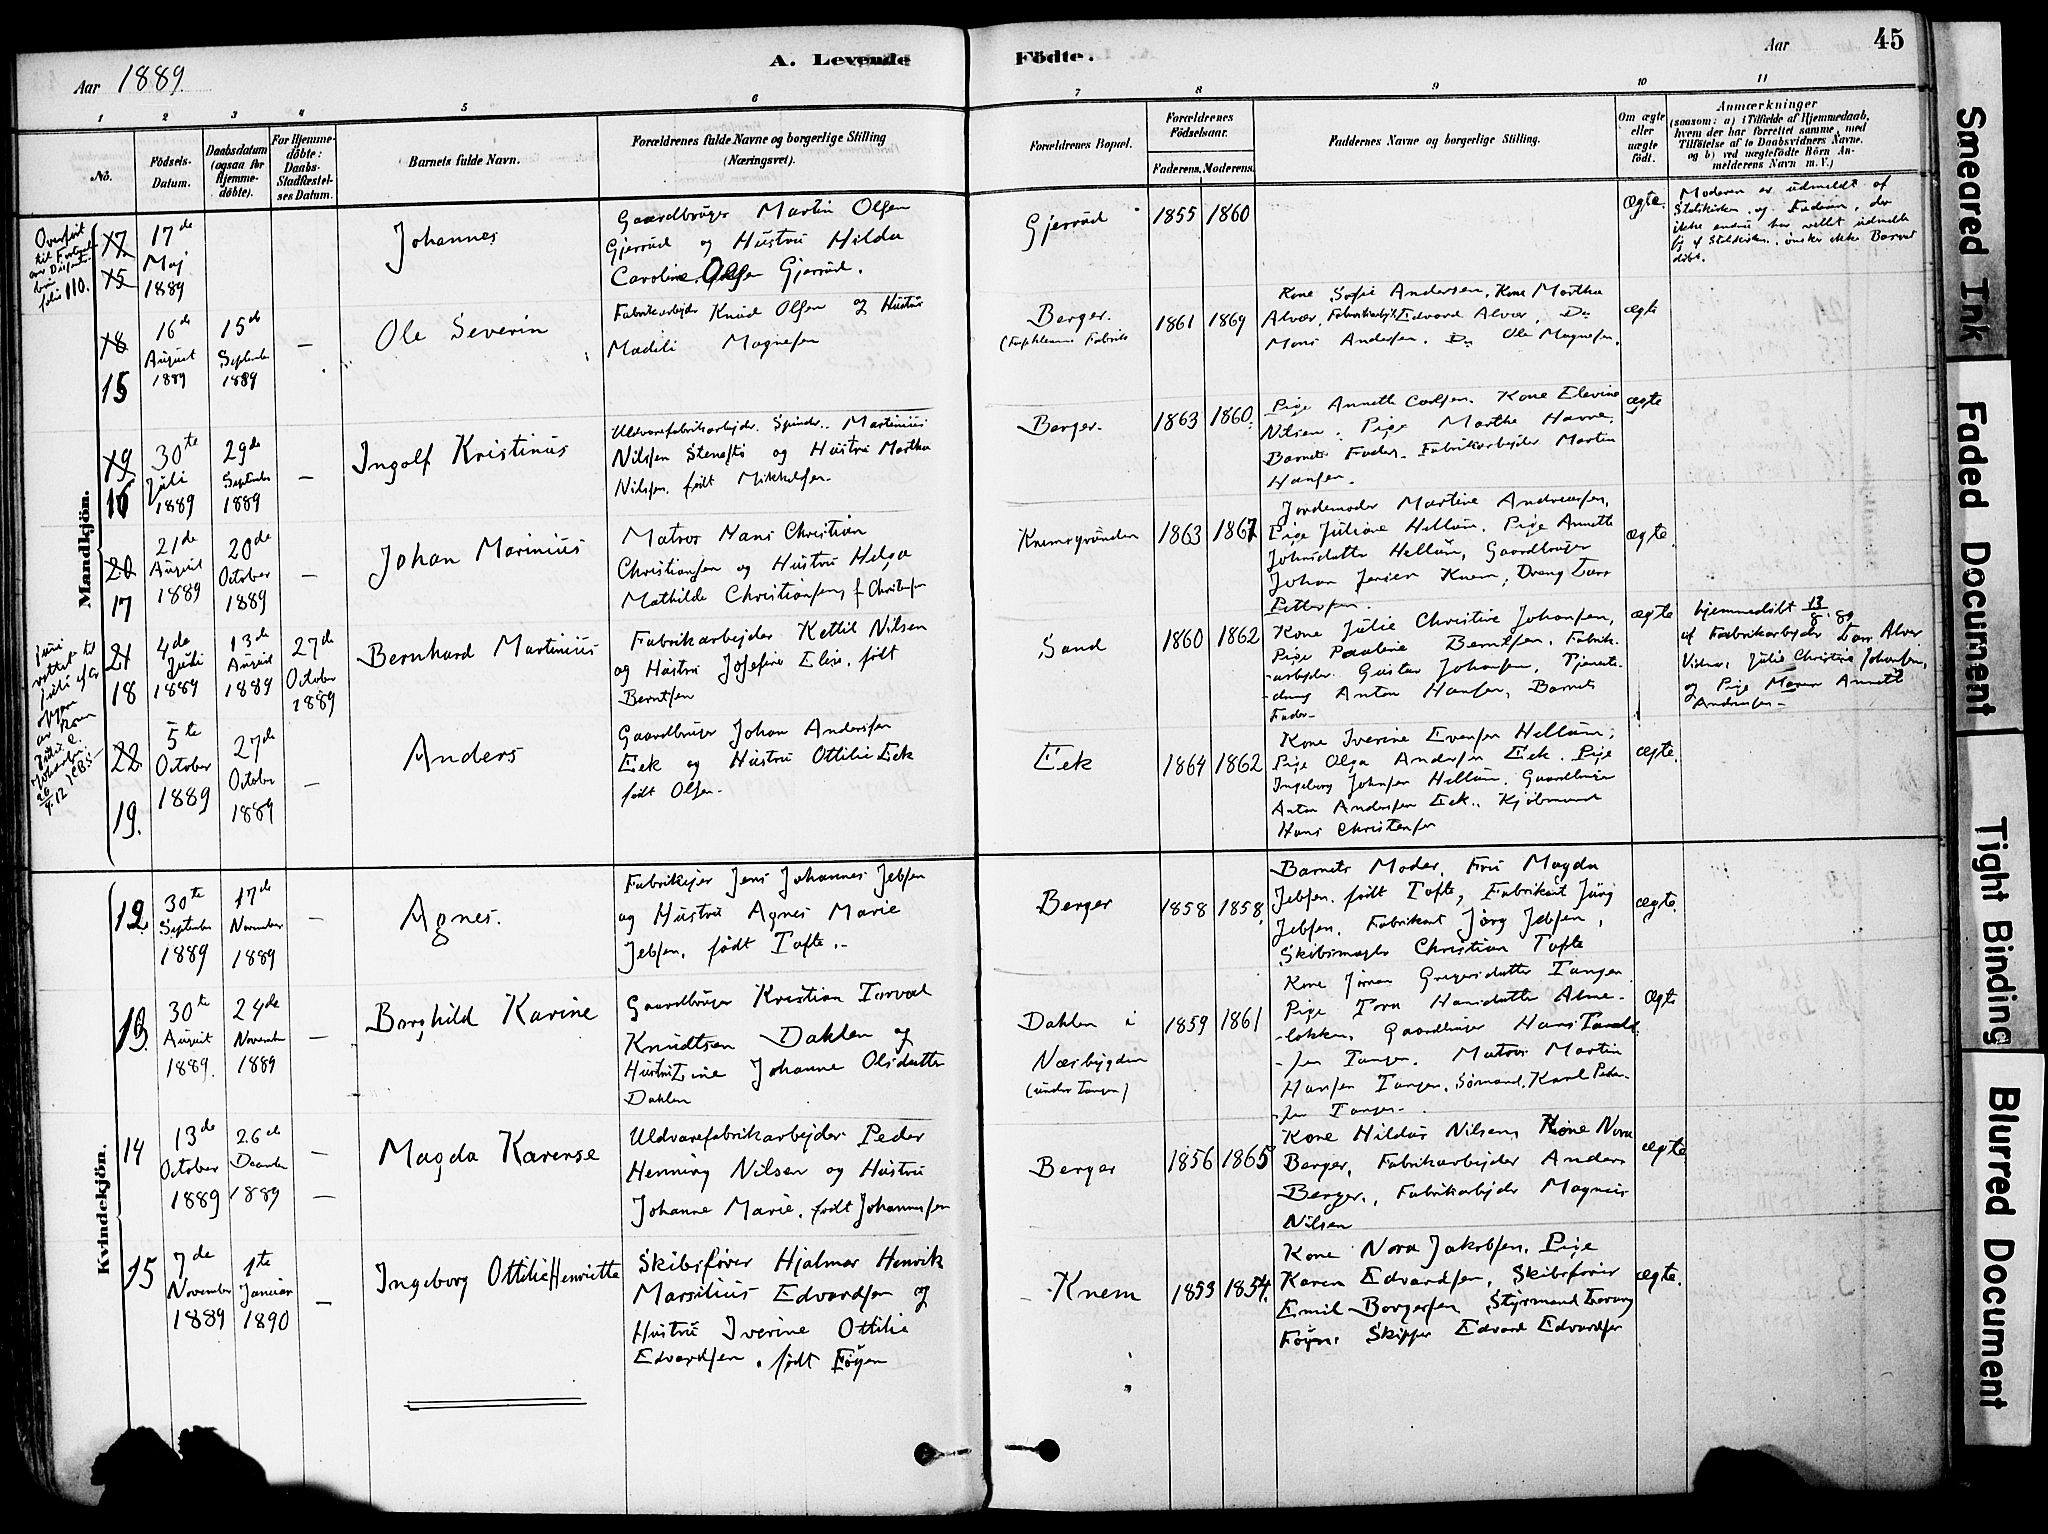 Aar 1889.
A. Levende
Födte.
Aar
45
1
2
3
4
5
6
7
8
9
10
11
No.
Födsels-
Datum.
Daabsdatum
(ogsaa for
Hjemme-
döbte).
For Hjemme-
döbte:
Daabs-
Stadfæstel-
ses Datum.
Barnets fulde Navn.
Forældrenes fulde Navne og borgerlige Stilling
(Næringsvei).
Forældrenes Bopæl.
Forældrenes
Födselsaar.
Faderens.
Moderens.
Faddernes Navne og borgerlige Stilling.
Om ægte
eller
uægte
födt.
Anmærkninger
(saasom: a) i Tilfælde af Hjemmedaab,
hvem der har forrettet samme, med
Tilföielse af to Daabsvidners Navne.
og b) ved uægtefödte Börn An-
melderens Navn m. V.)
Mandkjön.
Overfört
folio 110.
17
15
17de
Maj
1889
Johannes
Gaardbruger Martin Olsen
Gjerrud og Hustru Hilda
Caroline Olsen Gjerrud.
Gjerrud
1855
1860
Ægte.
Moderen er udmeldt af
Statskirken, og Faderen, der
ikke endnu har villet udmelde
sig af Statskirken, ønsker ikke Barnet
døbt.
18
15
16de
August
1889
15de
September
1889
—
Ole Severin
Fabrikarbejder Knud Olsen og Hustru
Madili Magnesen
Berger.
1861
1869
Kone Sofie Andersen, Kone Martha
Alver, Fabrikarbejd. Edvard Alver, Do
Mons Andersen. Do Ole Magnesen.
ægte
19
16
30te
Juli
1889
29de
September
1889
—
Ingolf Kristinus
Uldvarefabrikarbejder. Spinder. Martinius
Nilssen Stenefts og Hustru Martha
Nilssen. født Mikkelsen.
Berger.
1863
1860.
Pige Annette Carlsen. Kone Elevine
Nilsen. Pige Marthe Havne.
Barnets Fader. Fabrikarbejder Martin
Hansen.
ægte
20
17
21de
August
1889
20de
October
1889
—
Johan Marinius
Matros Hans Christian
Christiansen og Hustru Helga
Mathilde Christiansen, f. Christofsen
Knemsgrunden
1863
1867
Jordemoder Martine Andreasen,
Pige Juliane Hellum. Pige Annette
Johnsdatter Hellum, Gaardbruger
Johan Jensen Knem, Dreng Lars
Pettersen.
ægte.
21
18
4de
Juli
1889
13de
August
1889
27de
October
1889
Bernhard Martinius
Fabrikarbejder Kettil Nilsen
og Hustru Josefine Elise. født
Berntsen
Sand
1860
1862
Kone Julie Christine Johansen,
Pige Pauline Berntsen, Fabrik-
-arbejder Gustav Johansen, Tjeneste-
-dreng Anton Hansen, Barnets
Fader.
ægte
hjemmedøbt 13/8. 89
af Fabrikarbejder Lars Alver
Vidner, Julie Christine Johansen,
og Pige Maren Annette
Andresen.
22
19.
5te
October
1889
27de
October
1889
—
Anders
Gaardbruger Johan Anderssen
Eek og Hustru Ottilie Eek
født Olsen.
Eek
1864
1862
Kone Iverine Evensen Hellum,
Pige Olga Andersen Eek. Pige
Ingeborg Johnsen Hellum. Gaardbruger
Anton Anderssen Eek. Kjøbmand
Hans Christensen
ægte.
Kvindekjön.
12
30te
September
1889
17de
November
1889
—
Agnes.
Fabrikejer Jens Johannes Jebsen
og Hustru Agnes Marie
Jebsen. født Tofte.
Berger
1858
1858.
Barnets Moder, Fru Magda
Jebsen. født Tofte, Fabrikant Jürg
Jebsen. Fabrikant Jörg Jebsen,
Skibsmægler Christian Tofte
ægte.
13.
30te
August
1889.
24de
November
1889
—
Borghild Karine
Gaardbruger Kristian Torval
Knudtsen Dahlen og
Hustru Line Johanne Olsdatter
Dahlen
Dahlen i
Næsbygden
(under Tangen)
1859
1861
Kone Jöran Gregersdatter Tangen
Pige Tora Hansdatter Alme-
-lokken, Gaardbruger Hans
-sen Tangen. Matros Martin
Hansen Tangen. Sømand. Karl Peder-
-sen Tangen.
Ægte
14
13de
October
1889
26de
December
1889
—
—
Magda Karense
Uldvarefabrikarbejder Peder
Henning Nilsen og Hustru
Johanne Marie, født Johannessen
Berger
1856
1865
Kone Hildur Nilsen, Kone Nora
Berger, Fabrikarbejder Anders
Berger, Fabrikarbejder Magnus
Nilsen
ægte
15
7de
November
1889
1te
Januar
1890
—
Ingeborg Ottilie Henriette
Skibsfører Hjalmar Henrik
Marsilius Edvardsen og
Hustru Iverine Ottilie
Edvardsen. født Føyen
Knem
1853
1854.
Kone Nora Jakobsen. Pige
Karen Edvardsen, Skibsfører
Emil Borgersen Styrmand
Føyn. Skipper Edvard Edvardsen
ægte.
Smeared Ink
Faded Document
Tight Binding
Blurred Document